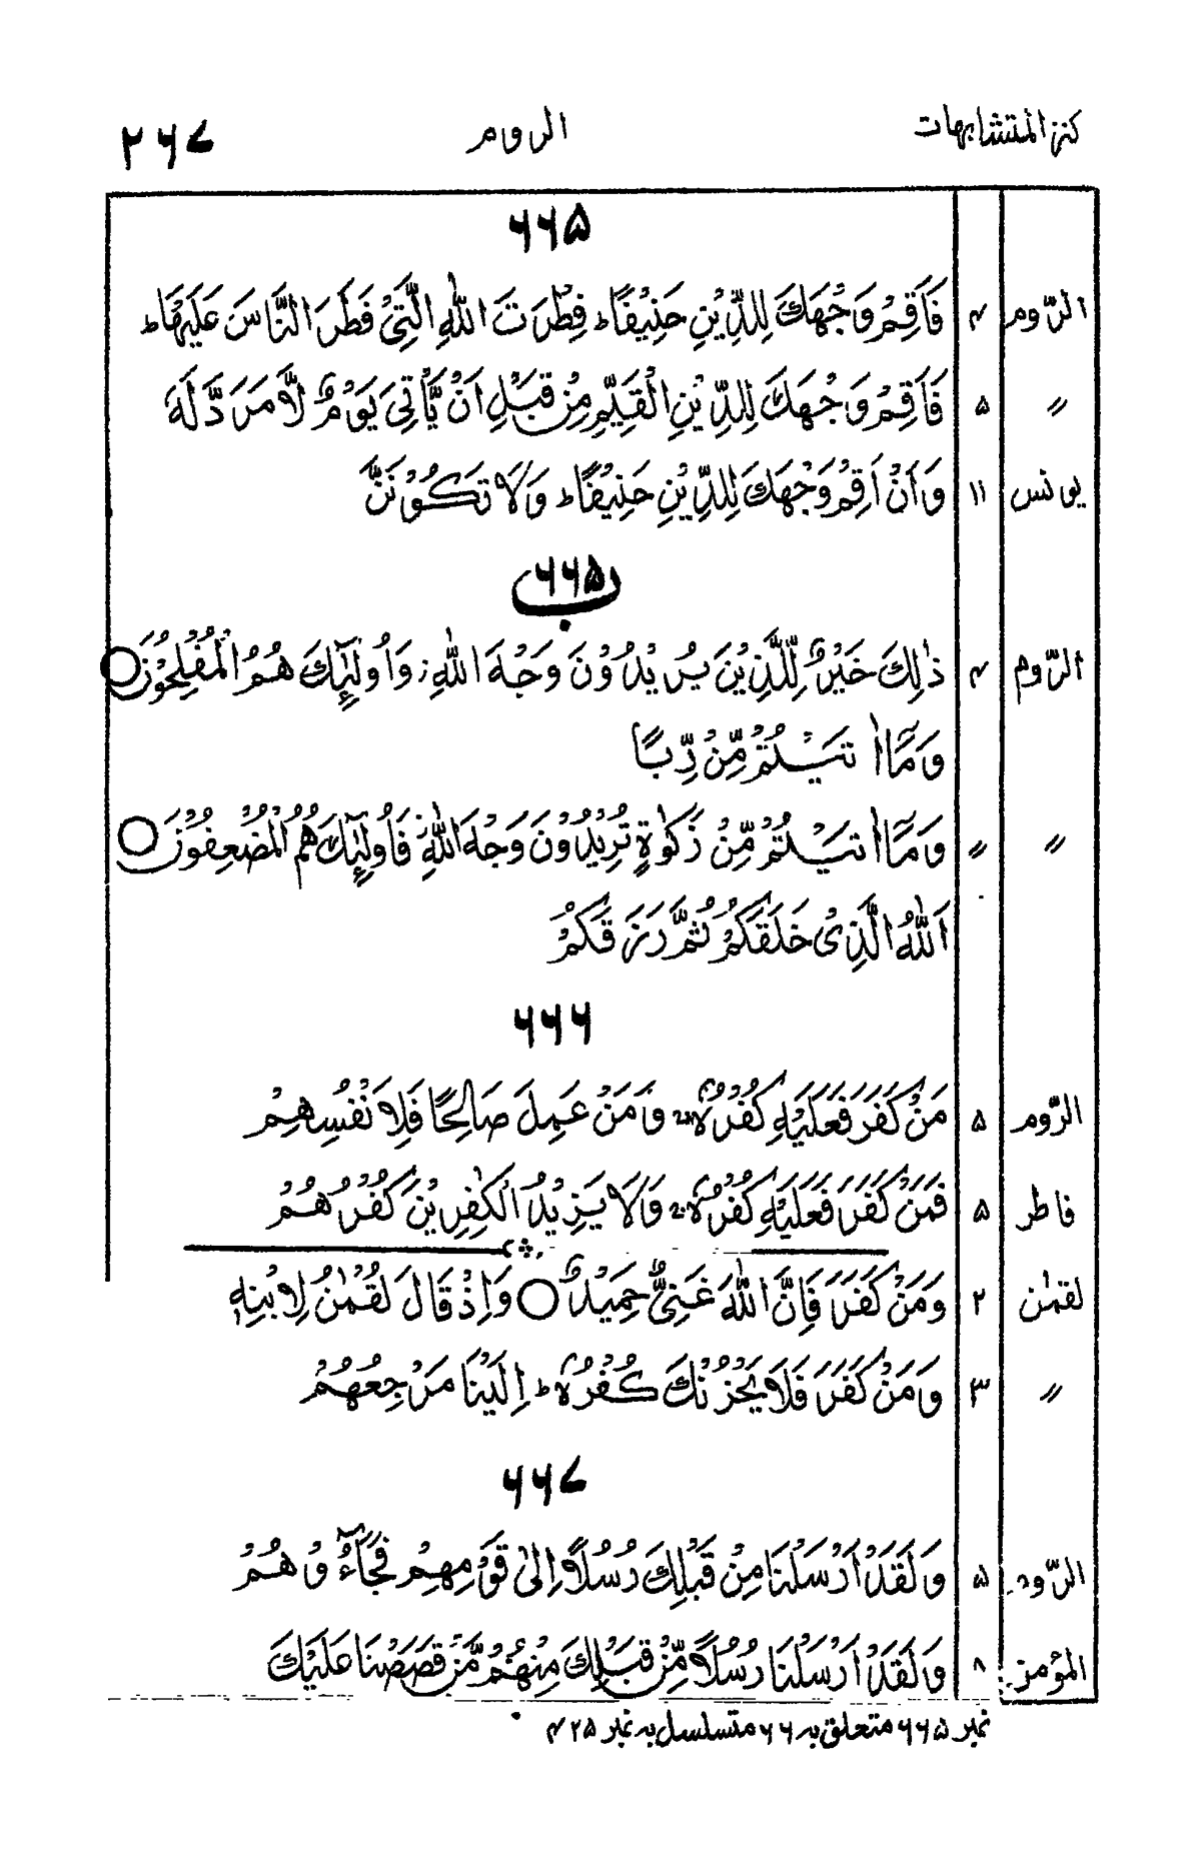 کنز المتشابهات الروم ۲۶۷
۶۶۵
الرّوم ۴ فَاَقِمْ وَجْهَكَ لِلدِّيْنِ حَنِيْفًا ؕ فِطْرَتَ اللّٰهِ الَّتِيْ فَطَرَ النَّاسَ عَلَيْهَا ؕ
〃 ۵ فَاَقِمْ وَجْهَكَ لِلدِّيْنِ الْقَيِّمِ مِنْ قَبْلِ اَنْ يَّاْتِيَ يَوْمٌ لَّا مَرَدَّ لَهٗ
یونس ۱۱ وَاَنْ اَقِمْ وَجْهَكَ لِلدِّيْنِ حَنِيْفًا ؕ وَلَا تَكُوْنَنَّ
۶۶۵ ب
الرّوم ۴ ذٰلِكَ خَيْرٌ لِّلَّذِيْنَ يُرِيْدُوْنَ وَجْهَ اللّٰهِ ز وَاُولٰٓئِكَ هُمُ الْمُفْلِحُوْنَ ○
وَمَآ اٰتَيْتُمْ مِّنْ رِّبًا
〃 〃 وَمَآ اٰتَيْتُمْ مِّنْ زَكٰوةٍ تُرِيْدُوْنَ وَجْهَ اللّٰهِ فَاُولٰٓئِكَ هُمُ الْمُضْعِفُوْنَ ○
اَللّٰهُ الَّذِيْ خَلَقَكُمْ ثُمَّ رَزَقَكُمْ
۶۶۶
الرّوم ۵ مَنْ كَفَرَ فَعَلَيْهِ كُفْرُهٗ ۚ وَمَنْ عَمِلَ صَالِحًا فَلِاَنْفُسِهِمْ
فاطر ۵ فَمَنْ كَفَرَ فَعَلَيْهِ كُفْرُهٗ ؕ وَلَا يَزِيْدُ الْكٰفِرِيْنَ كُفْرُهُمْ
لقمٰن ۲ وَمَنْ كَفَرَ فَاِنَّ اللّٰهَ غَنِيٌّ حَمِيْدٌ ○ وَاِذْ قَالَ لُقْمٰنُ لِابْنِهٖ
〃 ۳ وَمَنْ كَفَرَ فَلَا يَحْزُنْكَ كُفْرُهٗ ؕ اِلَيْنَا مَرْجِعُهُمْ
۶۶۷
الرّوم ۵ وَلَقَدْ اَرْسَلْنَا مِنْ قَبْلِكَ رُسُلًا اِلٰى قَوْمِهِمْ فَجَآءُوْهُمْ
المؤمن ۸ وَلَقَدْ اَرْسَلْنَا رُسُلًا مِّنْ قَبْلِكَ مِنْهُمْ مَّنْ قَصَصْنَا عَلَيْكَ
نمبر ۶۶۵ متعلق بہ ۶۶ متسلسل بہ نمبر ۴۲۵